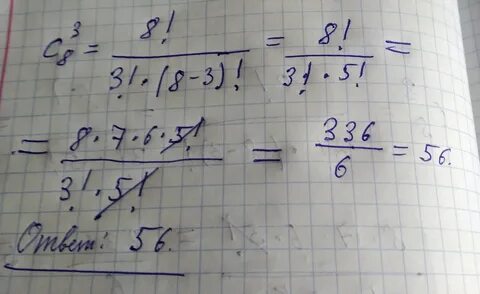 C₈³ = 8! / (3! · (8 - 3)!) = 8! / (3! · 5!) =
= (8 · 7 · 6 · 5!) / (3! · 5!) = 336 / 6 = 56.
Ответ: 56.